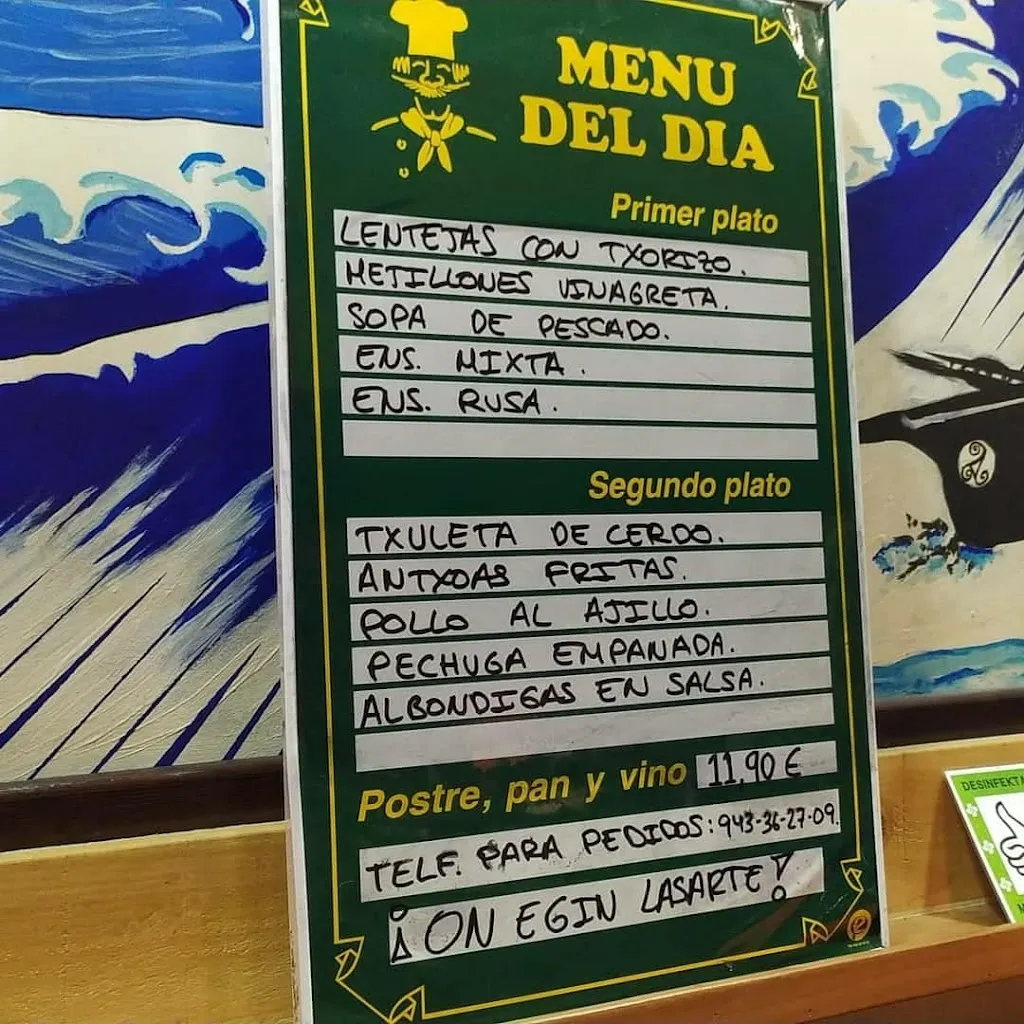 MENU
DEL DIA
Primer plato
LENTEJAS CON TXORIZO.
METILLONES VINAGRETA.
SOPA DE PESCADO.
ENS. MIXTA.
ENS. RUSA.
Segundo plato
TXULETA DE CERDO.
ANTXOAS FRITAS.
POLLO AL AJILLO.
PECHUGA EMPANADA.
ALBONDIGAS EN SALSA.
Postre, pan y vino 11,90 €
TELF. PARA PEDIDOS: 943-36-27-09.
¡ON EGIN LASARTE!